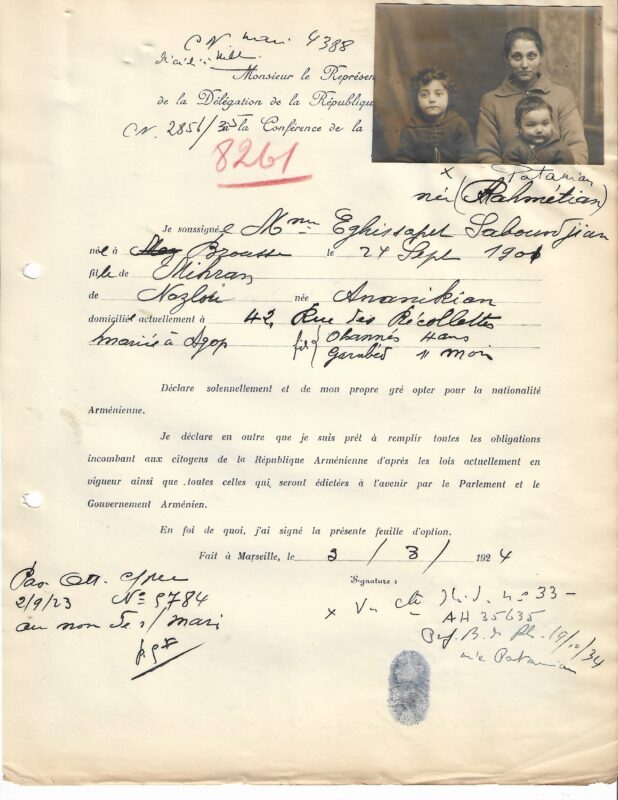 CN mari 4388
Monsieur le Représen
de la Délégation de la République
CN. 2856/35 à la Conférence de la
8261
x Patamian
née (Rahmétian)
Je soussignée Mme Eghissapet Sabourdjian
née à Brousse le 24 Sept 1901
fille de Mihran
de Nozlou née Ananikian
domicilié actuellement à 42, Rue des Récollettes
mariée à Agop fils { Ohannès 4 ans
Garabèd 11 mois
Déclare solennellement et de mon propre gré opter pour la nationalité
Arménienne.
Je déclare en outre que je suis prêt à remplir toutes les obligations
incombant aux citoyens de la République Arménienne d'après les lois actuellement en
vigueur ainsi que toutes celles qui seront édictées à l'avenir par le Parlement et le
Gouvernement Arménien.
En foi de quoi, j'ai signé la présente feuille d'option.
Fait à Marseille, le 3 / 3 / 1924
Signature :
Pas. Ott.
2/9/23 No 5784
au nom de s/ mari
x Vu no 33 -
AH 35635
B. du Rh. 19/10/34
née Patamian